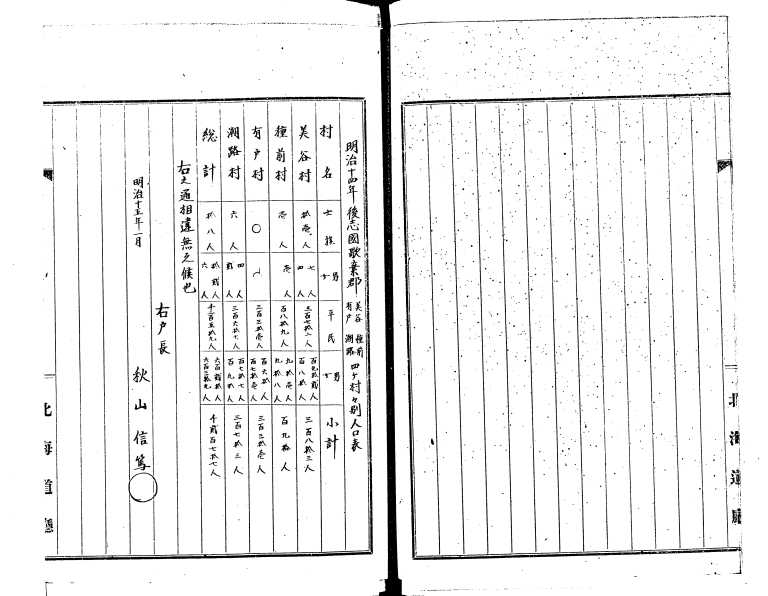 北海道廳
明治十四年後志國歌棄郡 美谷 種前 有戸 潮路 四ヶ村々別人口表
村名 士族 男 女 平民 男 女 小計
美谷村 拾壱人 七人 四人 三百七拾二人 百九拾弐人 百八拾人 三百八拾三人
種前村 壱人 壱人 百八拾九人 九拾壱人 九拾八人 百九拾人
有戸村 〇 三百三拾壱人 百六拾人 百七拾壱人 三百三拾壱人
潮路村 六人 四人 弐人 三百六拾七人 百七拾七人 百九拾人 三百七拾三人
総計 拾八人 拾弐人 六人 千二百五拾九人 六百弐拾人 六百三拾九人 千弐百七拾七人
右之通相違無之候也
明治十五年一月
右戸長
秋山信篤
北海道廳